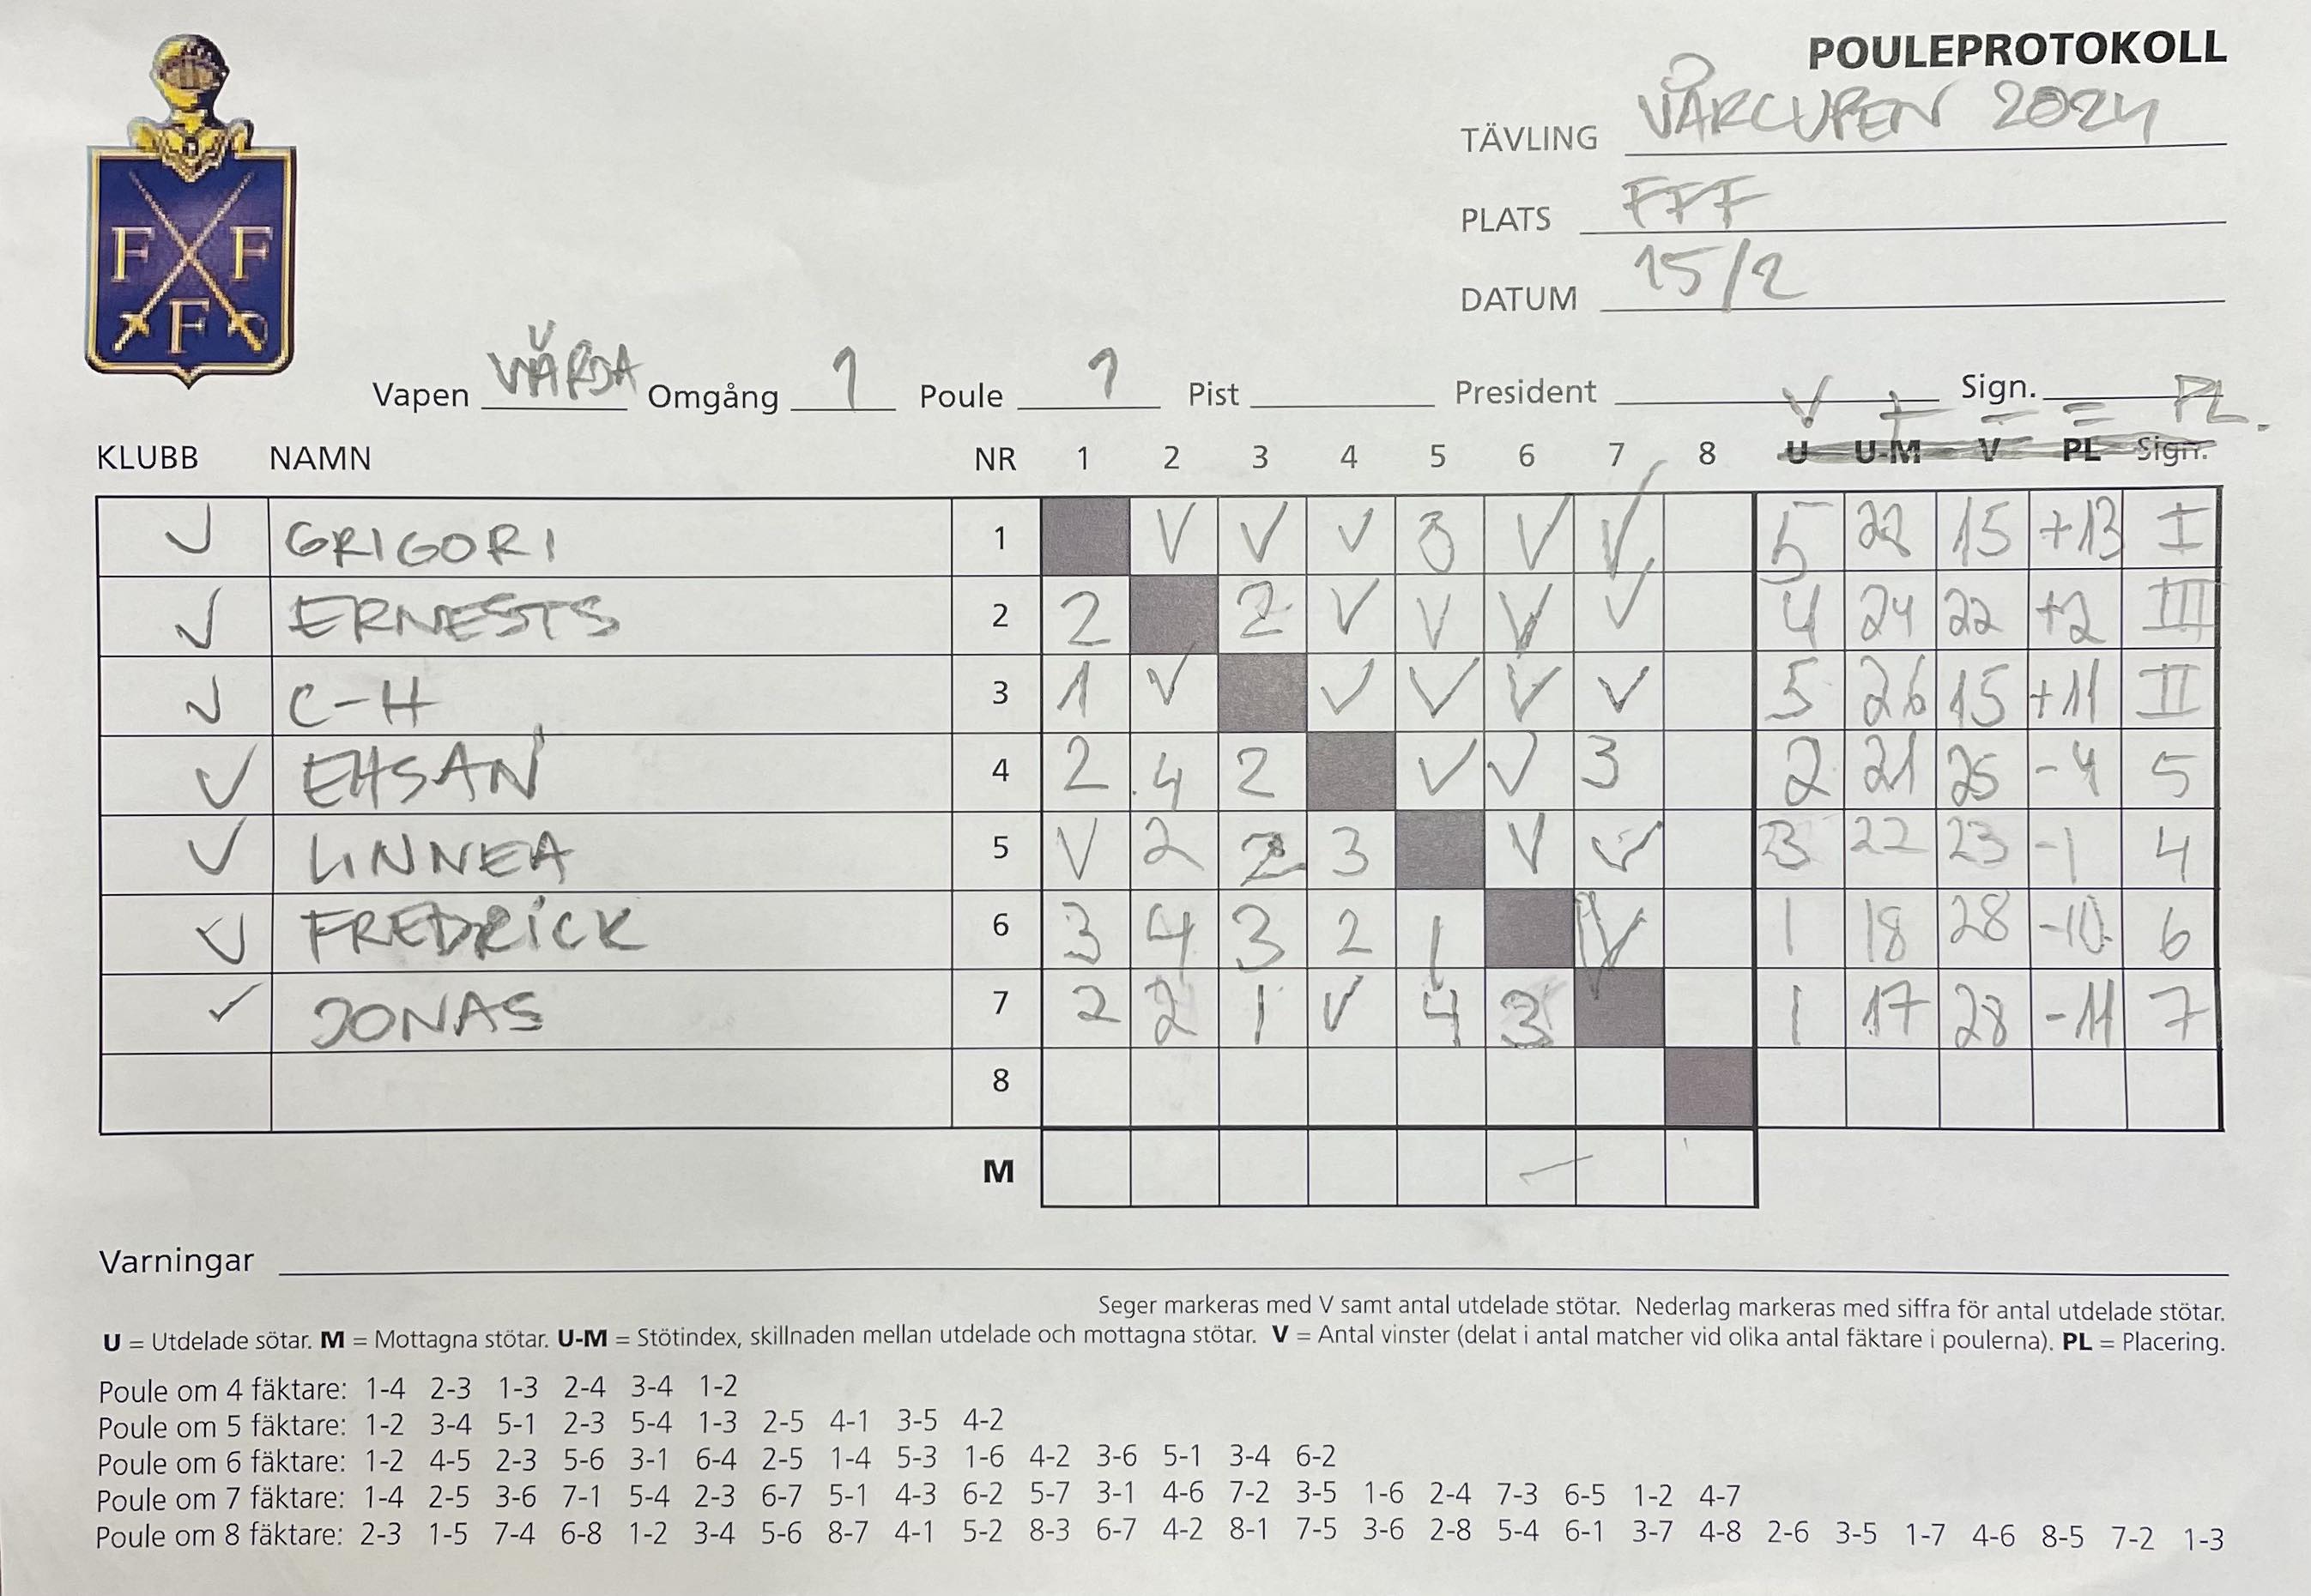 POULEPROTOKOLL
TÄVLING VÅRCUPEN 2024
PLATS FFF
DATUM 15/2
F F
F
Vapen VÄRJA Omgång 1 Poule 1 Pist President Sign.
V + - = PL.
KLUBB NAMN NR 1 2 3 4 5 6 7 8 U U-M V PL Sign.
V GRIGORI 1 V V V 3 V V 5 28 15 +13 I
V ERNESTS 2 2 2 V V V V 4 24 22 +2 III
V C-H 3 1 V V V V V 5 26 15 +11 II
V EHSAN 4 2 4 2 V V 3 2 21 25 -4 5
V LINNEA 5 V 2 2 3 V V 3 22 23 -1 4
V FREDRICK 6 3 4 3 2 1 V 1 18 28 -10 6
✓ JONAS 7 2 2 1 V 4 3 1 17 28 -11 7
8
M
Varningar
Seger markeras med V samt antal utdelade stötar. Nederlag markeras med siffra för antal utdelade stötar.
U = Utdelade sötar. M = Mottagna stötar. U-M = Stötindex, skillnaden mellan utdelade och mottagna stötar. V = Antal vinster (delat i antal matcher vid olika antal fäktare i poulerna). PL = Placering.
Poule om 4 fäktare: 1-4 2-3 1-3 2-4 3-4 1-2
Poule om 5 fäktare: 1-2 3-4 5-1 2-3 5-4 1-3 2-5 4-1 3-5 4-2
Poule om 6 fäktare: 1-2 4-5 2-3 5-6 3-1 6-4 2-5 1-4 5-3 1-6 4-2 3-6 5-1 3-4 6-2
Poule om 7 fäktare: 1-4 2-5 3-6 7-1 5-4 2-3 6-7 5-1 4-3 6-2 5-7 3-1 4-6 7-2 3-5 1-6 2-4 7-3 6-5 1-2 4-7
Poule om 8 fäktare: 2-3 1-5 7-4 6-8 1-2 3-4 5-6 8-7 4-1 5-2 8-3 6-7 4-2 8-1 7-5 3-6 2-8 5-4 6-1 3-7 4-8 2-6 3-5 1-7 4-6 8-5 7-2 1-3